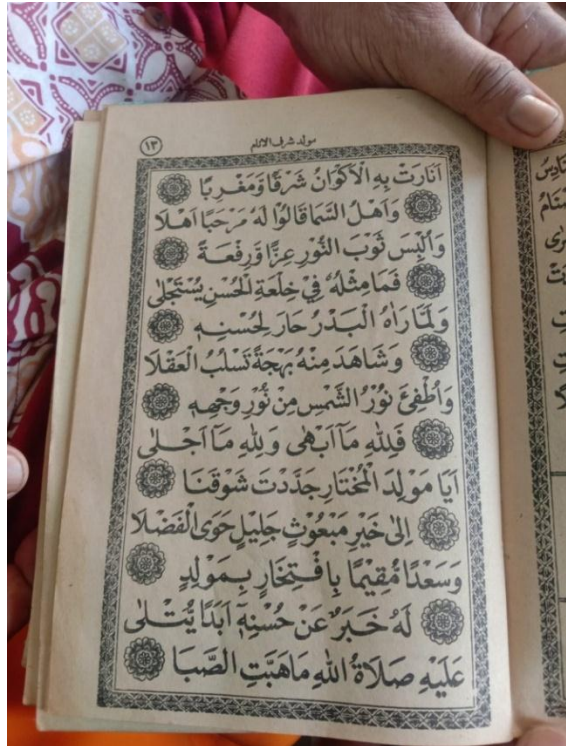 ١٣ مولد شرف الانام
اَنَارَتْ بِهِ الْاَكْوَانُ شَرْقًا وَّمَغْرِبًا
وَاَهْلُ السَّمَا قَالُوْا لَهُ مَرْحَبًا اَهْلَا
وَاُلْبِسَ ثَوْبَ النُّوْرِ عِزًّا وَّرِفْعَةً
فَمَا مِثْلُهُ فِيْ خِلْعَةِ الْحُسْنِ يُسْتَجْلٰى
وَلَمَّا رَاٰهُ الْبَدْرُ حَارَ لِحُسْنِهٖ
وَشَاهَدَ مِنْهُ بَهْجَةً تَسْلُبُ الْعَقْلَا
وَاُطْفِئَ نُوْرُ الشَّمْسِ مِنْ نُوْرِ وَجْهِهٖ
فَلِلّٰهِ مَآ اَبْهٰى وَلِلّٰهِ مَآ اَجْلٰى
اَيَا مَوْلِدَ الْمُخْتَارِ جَدَّدْتَ شَوْقَنَا
اِلٰى خَيْرِ مَبْعُوْثٍ جَلِيْلٍ حَوَى الْفَضْلَا
وَسَعْدًا مُّقِيْمًا بِافْتِخَارٍ بِمَوْلِدٍ
لَهُ خَبَرٌ عَنْ حُسْنِهٖٓ اَبَدًا يُّتْلٰى
عَلَيْهِ صَلَاةُ اللهِ مَاهَبَّتِ الصَّبَا